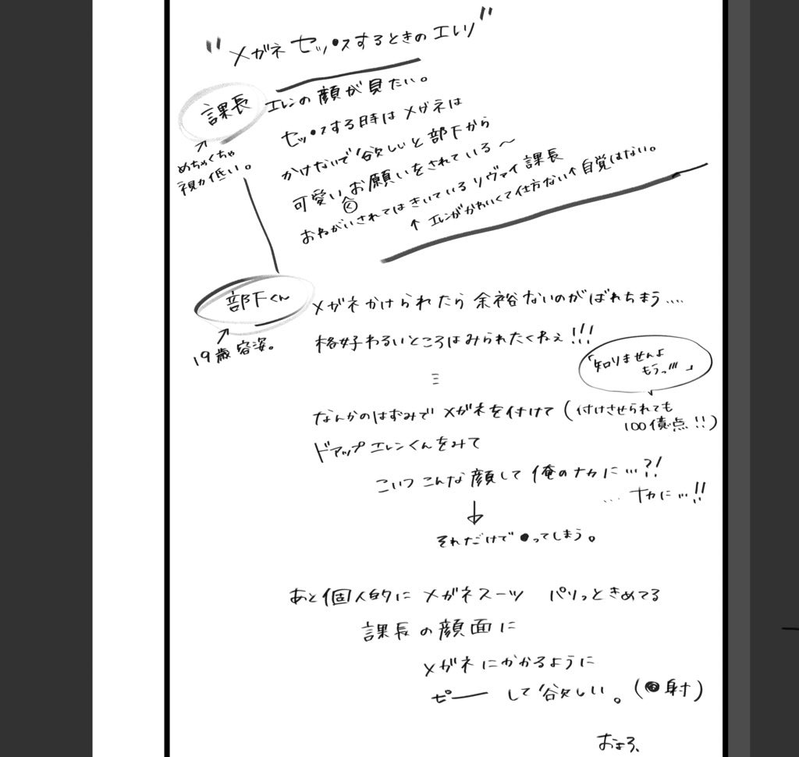 "メガネ セッ●スするときのエレリ"
課長
めちゃくちゃ
視力低い。
エレンの顔が見たい。
セッ●スする時はメガネは
かけないで欲しいと部下から
可愛いお願いをされている〜
おねがいされてはきいているリヴァイ課長
↑エレンがかわいくて仕方ない↑自覚はない。
部下くん
19歳容姿。
メガネかけられたら余裕ないのがばれちまう....
格好わるいところはみられたくねぇ!!!
「知りませんよ
もうっ///」
なんかのはずみでメガネを付けて(付けさせられても
100億点!!)
ドアップエレンくんをみて
こいつこんな顔して俺のナカに…?!
...ナカに…!!
↓
それだけで●ってしまう。
あと個人的にメガネスーツ パリっときめてる
課長の顔面に
メガネにかかるように
ピー── して欲しい。(●射)